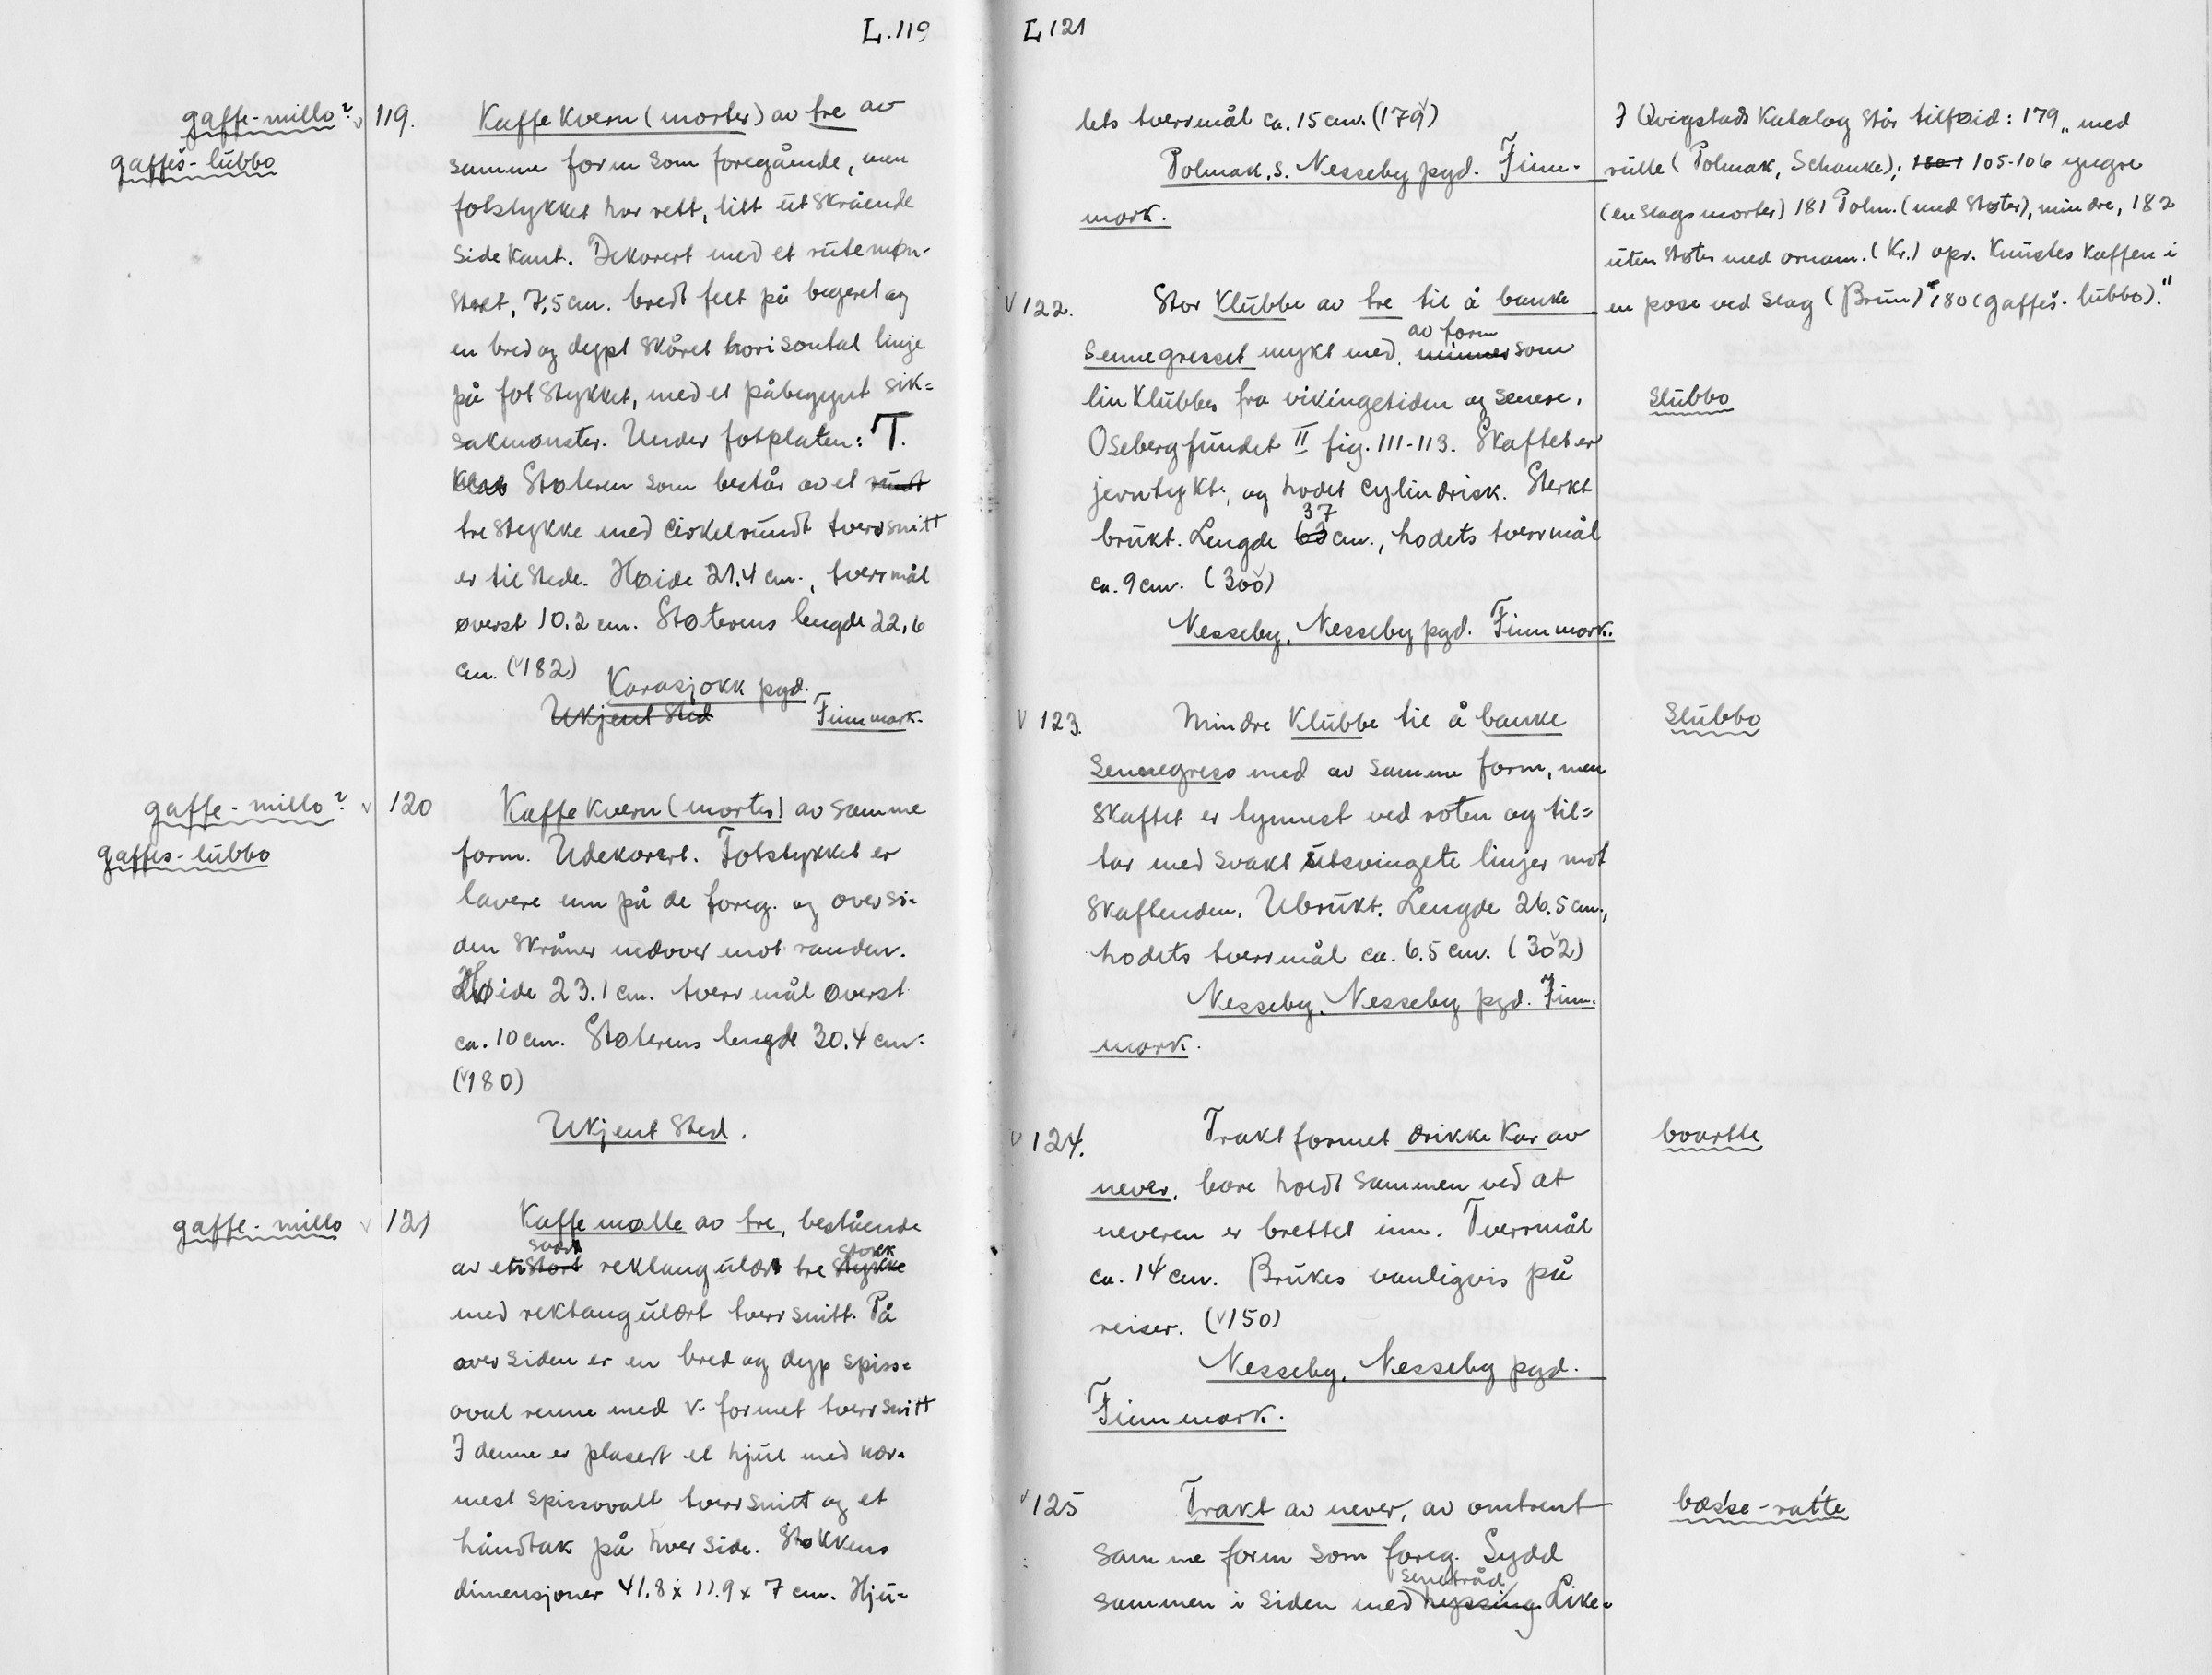 L.119
gaffe-millo?
gaffeš-lubbo
119. Kaffekvern (morter) av tre av
samme form som foregående, men
fotstykket har rett, litt utskrående
sidekant. Dekorert med et rutemøn-
stret, 7,5 cm. bredt felt på begeret og
en bred og dypt skåret horisontal linje
på fotstykket, med et påbegynt sik=
sakmønster. Under fotplaten: T.
Støteren som består av et rundt
trestykke med cirkelrundt tverrsnitt
er tilstede. Høide 21,4 cm., tverrmål
øverst 10.2 cm. Støterens lengde 22,6
cm. (182)
Karasjokk pgd.
Ukjent sted Finnmark.
gaffe-millo?
gaffes-lubbo
120 Kaffekvern (morter) av samme
form. Udekorert. Fotstykket er
lavere enn på de foreg. og oversi-
den skråner nedover mot randen.
Høide 23.1 cm. tverrmål øverst
ca. 10 cm. Støterens lengde 30.4 cm.
(180)
Ukjent sted.
gaffe-millo
121 Kaffemølle av tre, bestående
svær stokk
av en stort rektangulært tre stykke
med rektangulært tverrsnitt. På
oversiden er en bred og dyp spiss=
oval renne med v-formet tverrsnitt
I denne er plasert et hjul med nær-
mest spissovalt tverrsnitt og et
håndtak på hver side. Stokkens
dimensjoner 41.8 x 11.9 x 7 cm. Hju-
L 121
lets tverrmål ca. 15 cm. (179)
Polmak, s. Nesseby pgd. Finn-
mark.
I Qvigstads Katalog står tilføid: 179 „med
rulle (Polmak, Schanke); 180 105-106 yngre
(en slags morter) 181 Polm. (med støter), mindre, 182
uten støter med ornam. (Kr.) opr. knustes kaffen i
en pose ved slag (Brun) 180 (gaffeš-lubbo)."
122. Stor klubbe av tre til å banke
av form
sennegresset mykt med, minner som
linklubber fra vikingetiden og senere.
Osebergfundet II fig. 111-113. Skaftet er
jevntykt, og hodet cylindrisk. Sterkt
37
brukt. Lengde 63 cm., hodets tverrmål
ca. 9 cm. (300)
Nesseby, Nesseby pgd. Finnmark.
slubbo
123. Mindre klubbe til å banke
sennegress med av samme form, men
skaftet er tynnest ved roten og til=
tar med svakt utsvingete linjer mot
skaftenden. Ubrukt. Lengde 26.5 cm.,
hodets tverrmål ca. 6.5 cm. (302)
Nesseby, Nesseby pgd. Finn-
mark.
slubbo
124. Traktformet drikkekar av
never, bare holdt sammen ved at
neveren er brettet inn. Tverrmål
ca. 14 cm. Brukes vanligvis på
reiser. (150)
Nesseby, Nesseby pgd.
Finnmark.
boartte
125 Trakt av never, av omtrent
samme form som foreg. Sydd
senetråd
sammen i siden med hyssing. Like=
bæsse-ratte